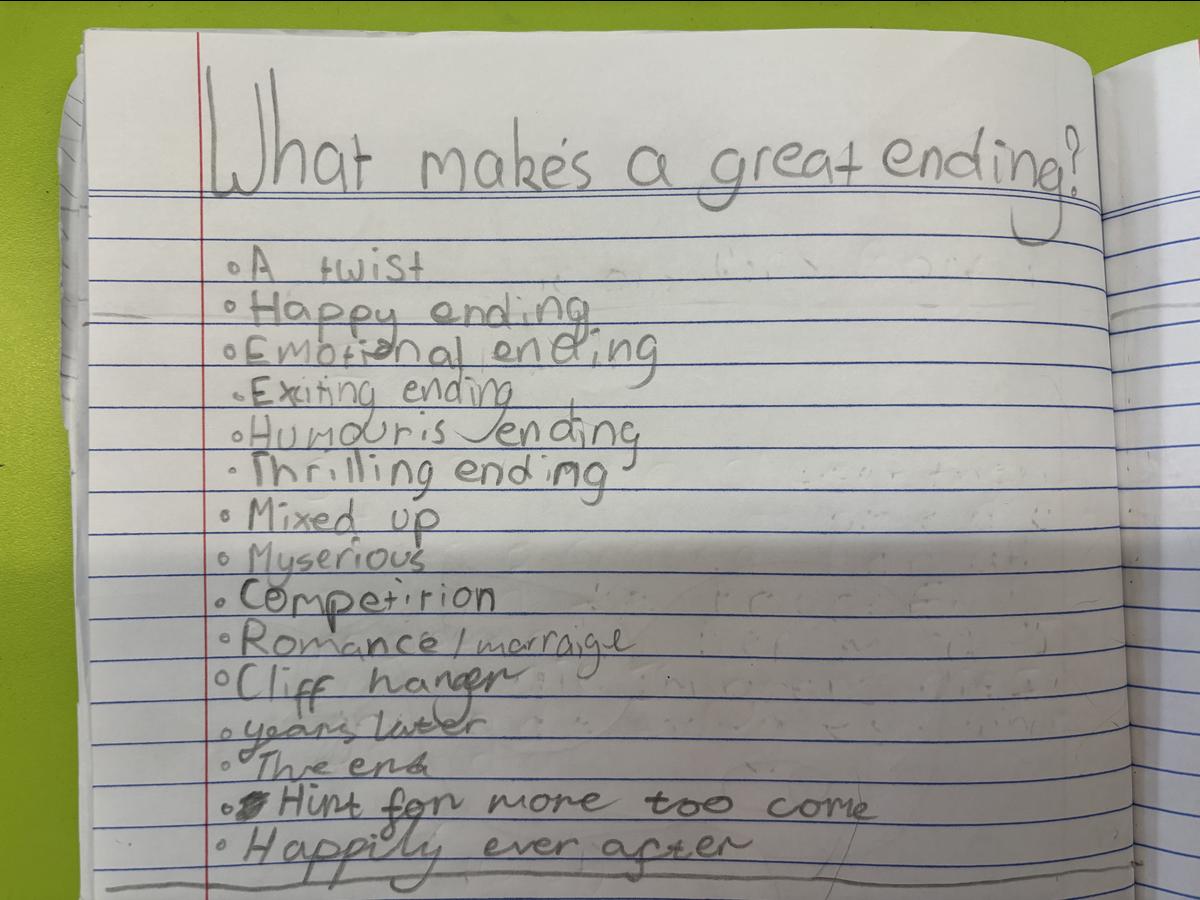 What make's a great ending?
• A twist
• Happy ending
• Emotional ending
• Exciting ending
• Humouris ending
• Thrilling ending
• Mixed up
• Myserious
• Competirion
• Romance / marraige
• Cliff hanger
• years later
• The end
• Hint for more too come
• Happily ever after